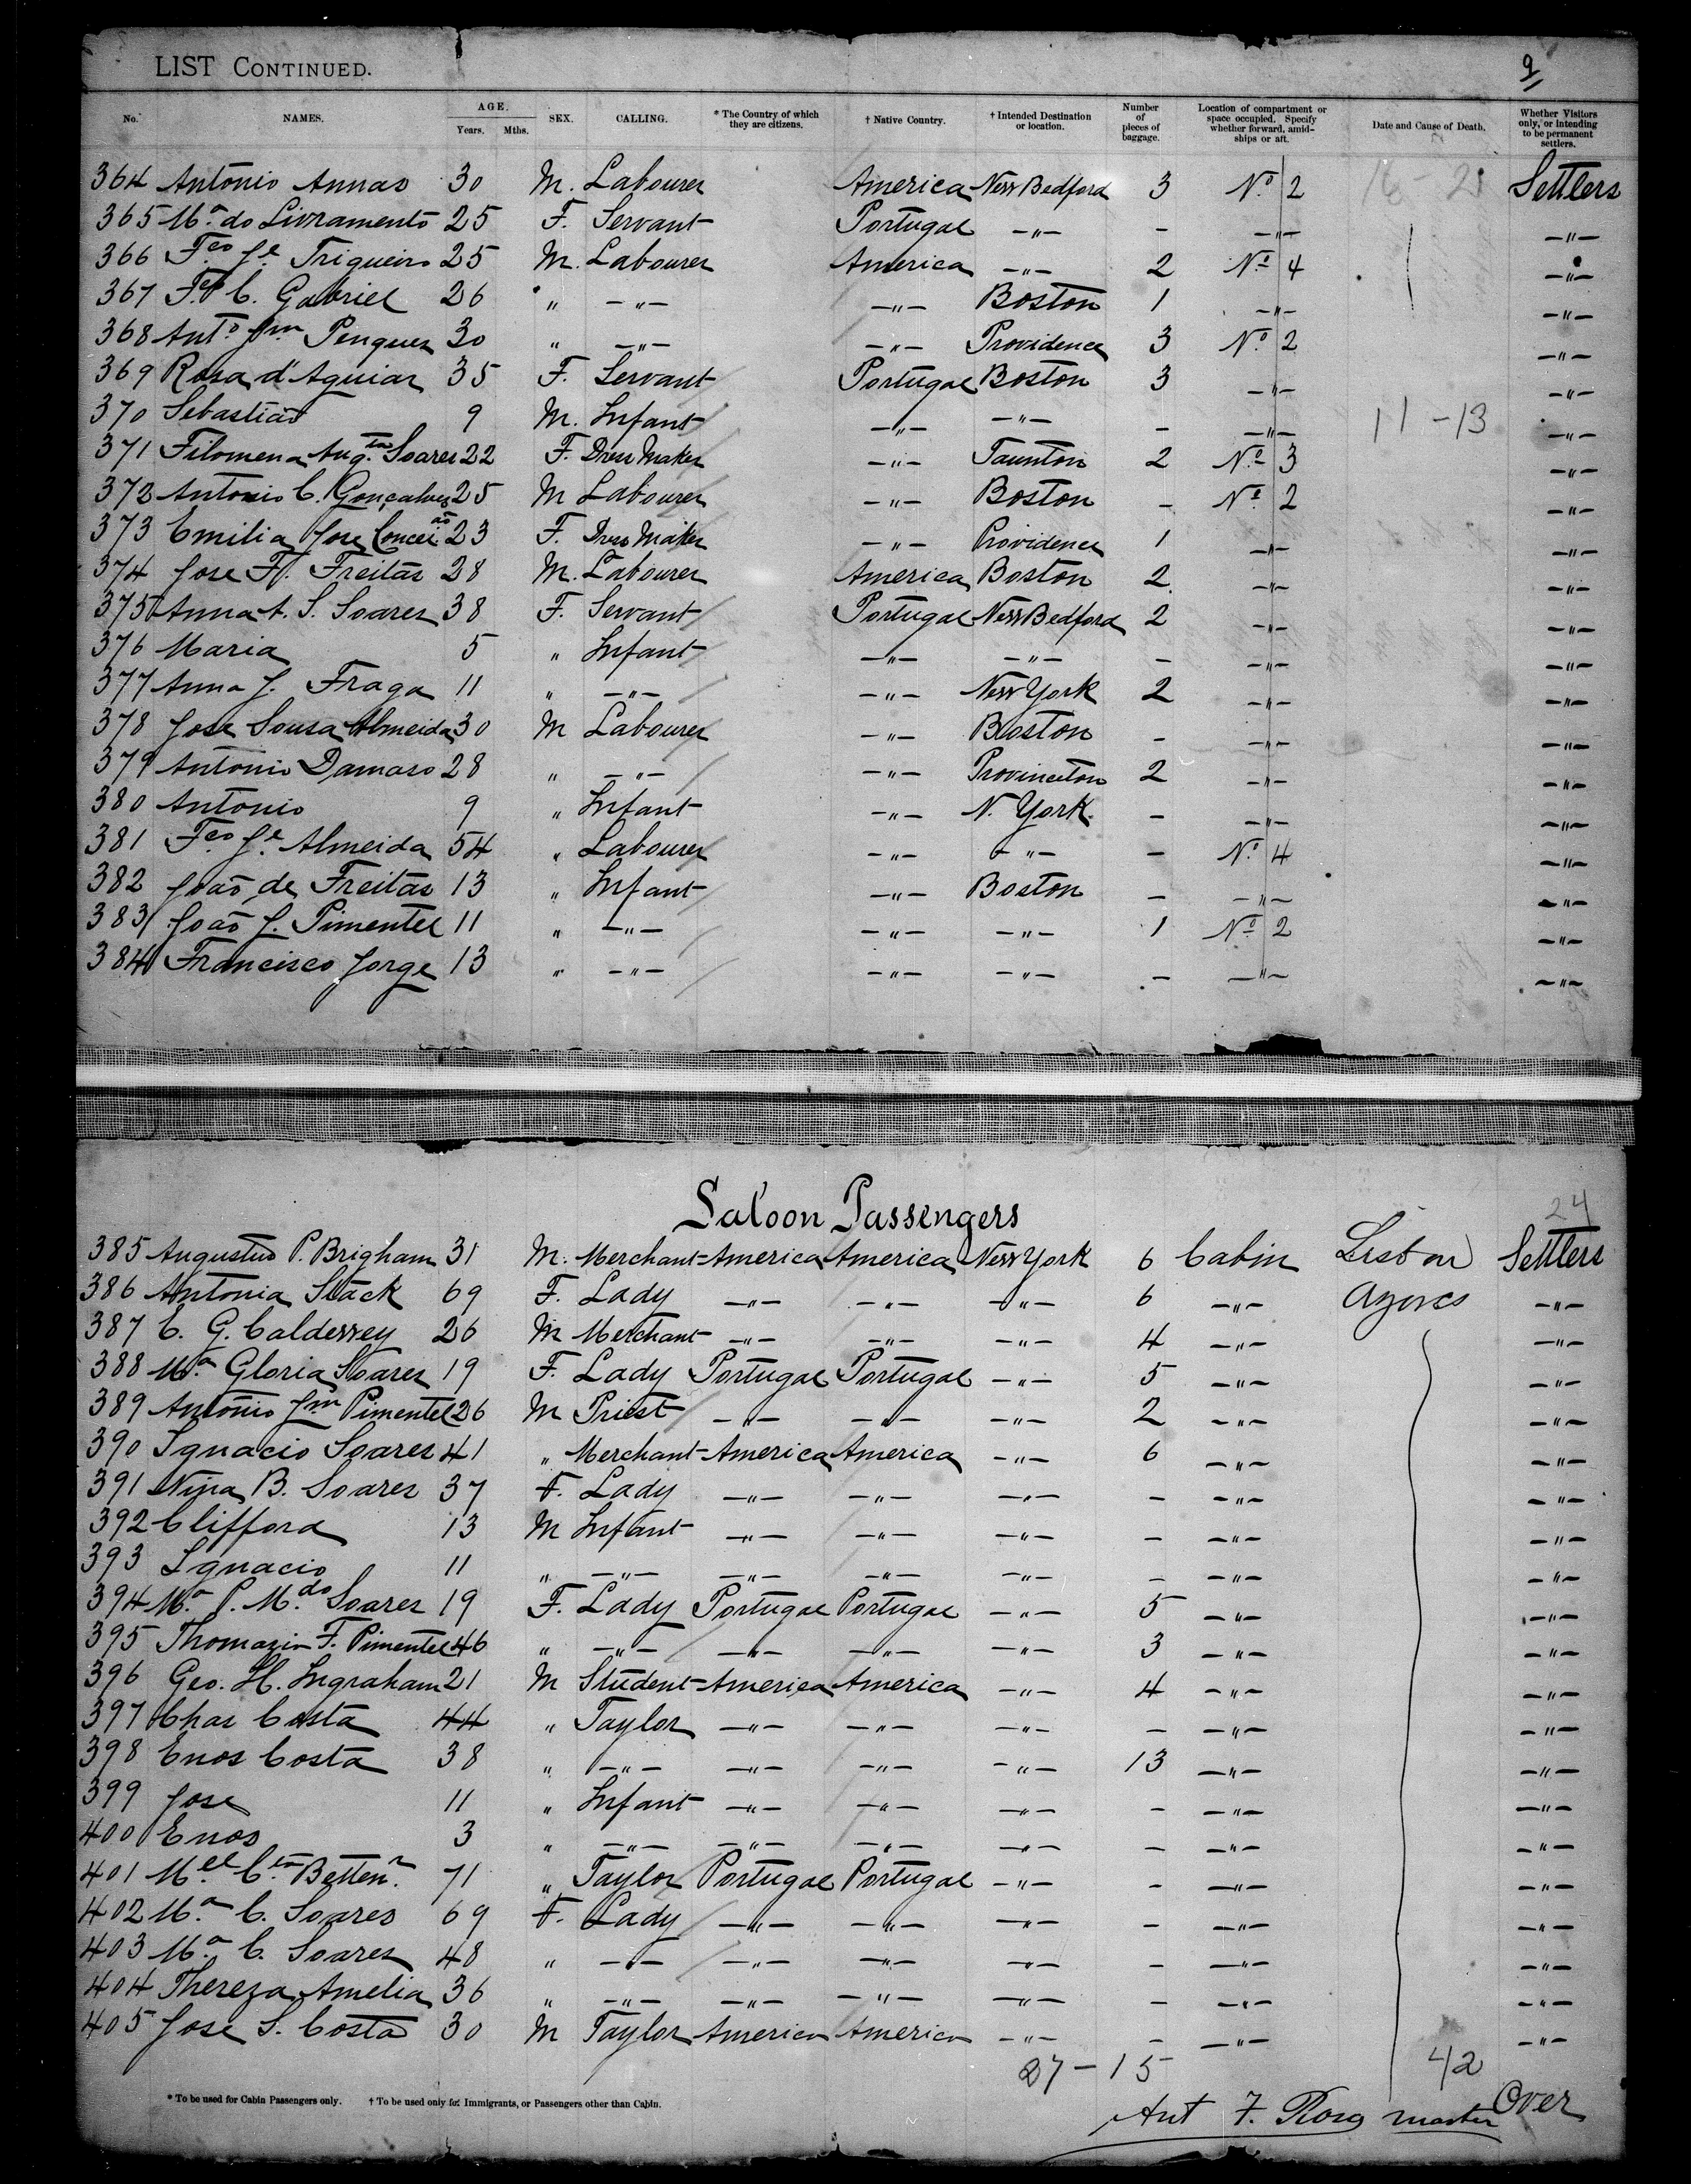 LIST CONTINUED.
9
No. NAMES. AGE. Years. Mths. SEX. CALLING. * The Country of which they are citizens. † Native Country. † Intended Destination or location. Number of pieces of baggage. Location of compartment or space occupied. Specify whether forward, amidships or aft. Date and Cause of Death. Whether Visitors only, or intending to be permanent settlers.
364 Antonio Annas 30 M. Labourer America New Bedford 3 No. 2 16 - 21 Settlers
365 Ma. do Livramento 25 F. Servant Portugal —"— - —"— —"—
366 Fco. Je. Trigueiro 25 M. Labourer America —"— 2 No. 4 —"—
367 Fco. C. Gabriel 26 " —"— —"— Boston 1 —"— —"—
368 Anto. Jm Penques 30 " —"— —"— Providence 3 No. 2 —"—
369 Rosa d'Aguiar 35 F. Servant Portugal Boston 3 —"— —"—
370 Sebastião 9 M. Infant —"— —"— - —"— 11 - 13 —"—
371 Filomena Augta. Soares 22 F. Dress Maker —"— Taunton 2 No. 3 —"—
372 Antonio C. Gonçalves 25 M Labourer —"— Boston - No. 2 —"—
373 Emilia Jose Conceião 23 F. Dress Maker —"— Providence 1 —"— —"—
374 Jose F. Freitas 28 M. Labourer America Boston 2 —"— —"—
375 Anna A. S. Soares 38 F. Servant Portugal New Bedford 2 —"— —"—
376 Maria 5 " Infant —"— —"— - —"— —"—
377 Anna J. Fraga 11 " —"— —"— New York 2 —"— —"—
378 Jose Sousa Almeida 30 M Labourer —"— Boston - —"— —"—
379 Antonio Damaso 28 " —"— —"— Provinceton 2 —"— —"—
380 Antonio 9 " Infant —"— N. York. - —"— —"—
381 Fco Je. Almeida 54 " Labourer —"— —"— - No. 4 —"—
382 João de Freitas 13 " Infant —"— Boston - —"— —"—
383 João J. Pimentel 11 " —"— —"— —"— 1 No. 2 —"—
384 Francisco Jorge 13 " —"— —"— —"— - —"— —"—
Saloon Passengers
24
385 Augustus P. Brigham 31 M. Merchant America America New York 6 Cabin Lisbon Settlers
386 Antonia Stack 69 F. Lady —"— —"— —"— 6 —"— Azores —"—
387 C. G. Calderrey 26 M Merchant —"— —"— —"— 4 —"— —"—
388 Ma. Gloria Soares 19 F. Lady Portugal Portugal —"— 5 —"— —"—
389 Antonio Jm Pimentel 26 M Priest —"— —"— —"— 2 —"— —"—
390 Ignacio Soares 41 " Merchant America America —"— 6 —"— —"—
391 Nina B. Soares 37 F. Lady —"— —"— —"— - —"— —"—
392 Clifford 13 M Infant —"— —"— —"— - —"— —"—
393 Ignacio 11 " —"— —"— —"— —"— - —"— —"—
394 Ma. P. Mdo. Soares 19 F. Lady Portugal Portugal —"— 5 —"— —"—
395 Thomazia F. Pimentel 46 " —"— —"— —"— —"— 3 —"— —"—
396 Geo. H. Ingraham 21 M Student America America —"— 4 —"— —"—
397 Chas Costa 44 " Taylor —"— —"— —"— - —"— —"—
398 Enos Costa 38 " —"— —"— —"— —"— 13 —"— —"—
399 Jose 11 " Infant —"— —"— —"— - —"— —"—
400 Enos 3 " —"— —"— —"— —"— - —"— —"—
401 Mel. Cta Betten. 71 " Taylor Portugal Portugal —"— - —"— —"—
402 Ma. C. Soares 69 F. Lady —"— —"— —"— - —"— —"—
403 Ma. C. Soares 48 " —"— —"— —"— —"— - —"— —"—
404 Thereza Amelia 36 " —"— —"— —"— —"— - —"— —"—
405 Jose S. Costa 30 M Taylor America America —"— - —"— —"—
27 - 15 42
* To be used for Cabin Passengers only. † To be used only for Immigrants, or Passengers other than Cabin.
Ant F. Rosa master Over